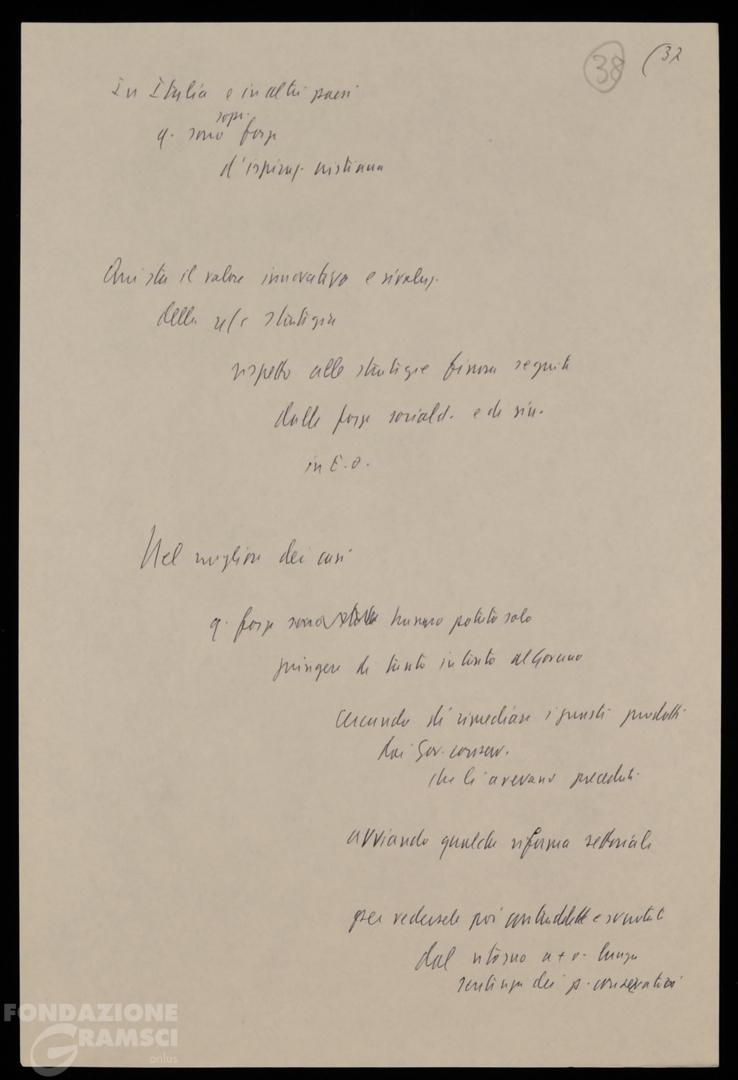 38 (32
In Italia e in altri paesi
sopr.
q. sono forze
d'ispiraz. cristiana
Qui sta il valore innovativo e rivoluz.
della strategia
rispetto alle strategie finora seguite
dalle forze sociald. e di sin.
in E. O.
Nel migliore dei casi
q. forze sono hanno potuto solo
giungere di tanto in tanto al Governo
cercando di rimediare i guasti prodotti
dai Gov. conserv.
che li avevano preceduti
avviando qualche riforma settoriale
per vedersele poi contraddette e svuotate
dal ritorno a + o - lunga
dei p. conservatori
FONDAZIONE
GRAMSCI
onlus